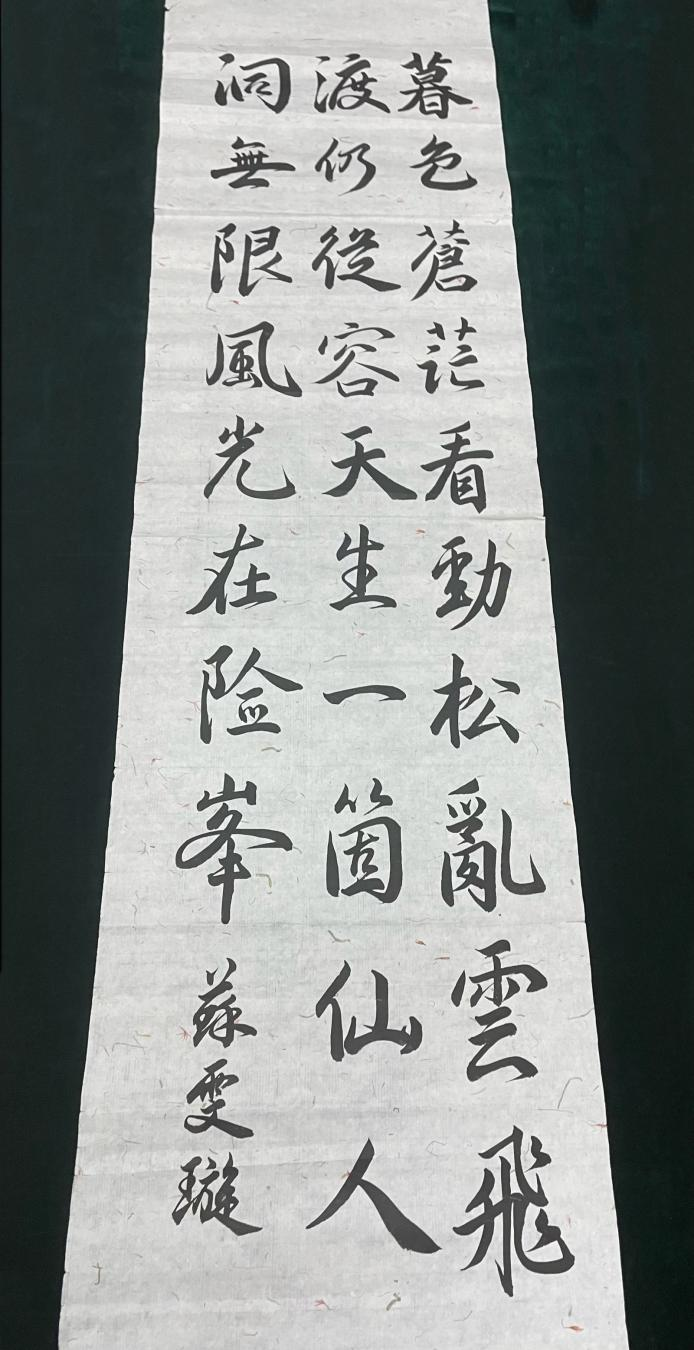 暮色蒼茫看勁松亂雲飛
渡仍從容天生一箇仙人
洞無限風光在险峯 蘇雯璇